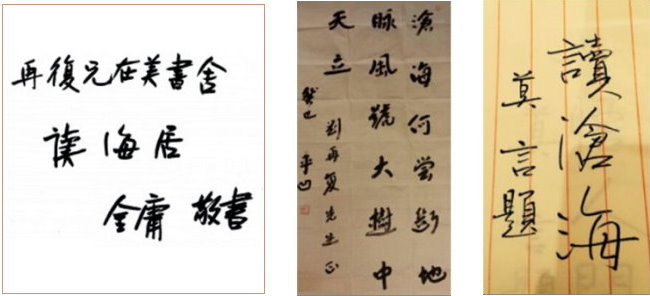 再復兄在美書舍
读海居
金庸 敬書
滄海何嘗斷地
脉風號大樹中
天立 劉再复先生正
癸巳 平凹
讀滄海
莫言題